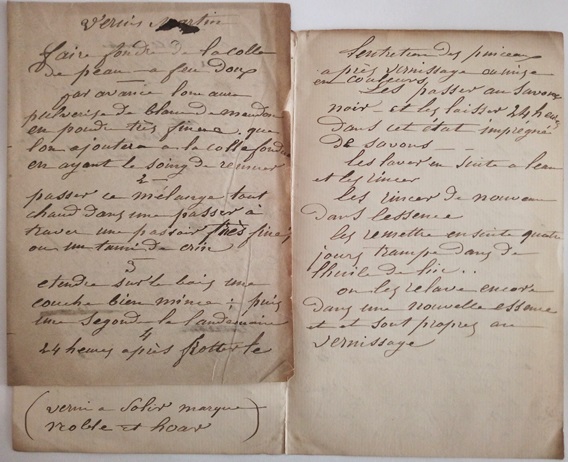 Vernis Martin
faire fondre de la colle
de peau a feu doux
par avance lon aura
pulverisé de blanc de meudon
en poudre très finne que
lon ajoutera a la colle fondue
en ayant le soing de remuer
2
passer ce mélange tout
chaud dans une passer a
traver une passoir très fine
ou un tamis de crin
3
etendre sur le bois une
couche bien mince : puis
une segond le landemain
4
24 heures après frotter le
(vernis a Polir marque
noble et hoar)
Lentretien des pinceau
après vernissage ou mise
en couleurs
Les passer au savon
noir et les laisser 24 heures
dans cet état impregné
de savons
les laver en suite a leau
et les rincer
les rincer de nouveau
dans lessence
les remettre ensuite quatre
jours trampé dans de
lhuile de lin ..
on les relave encore
dans une nouvelle essence
et et sont propres au
vernissage